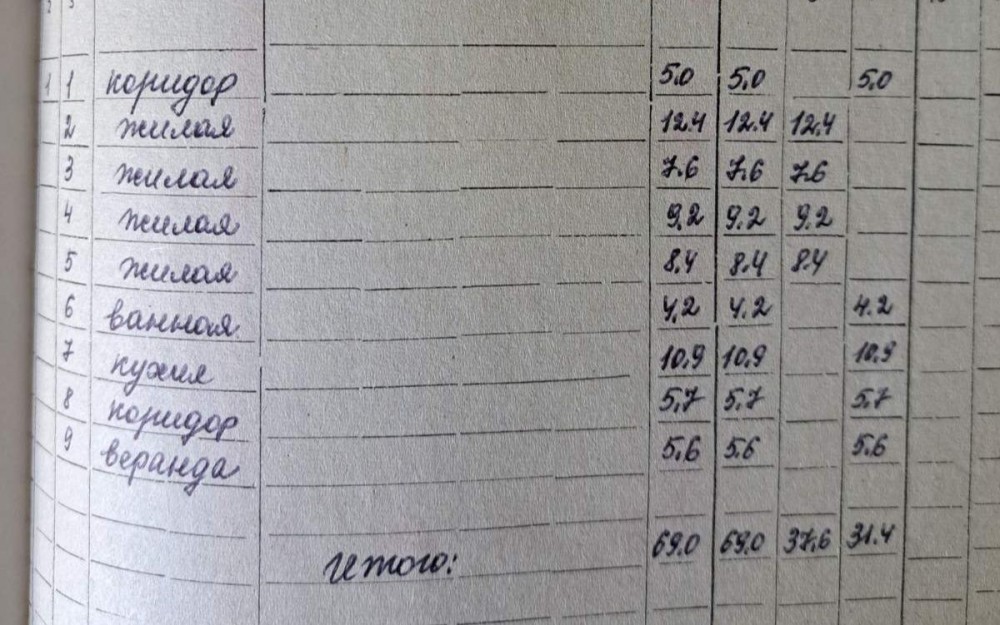 1 1 коридор 5.0 5.0 5.0
2 жилая 12.4 12.4 12.4
3 жилая 7.6 7.6 7.6
4 жилая 9.2 9.2 9.2
5 жилая 8.4 8.4 8.4
6 ванная 4.2 4.2 4.2
7 кухня 10.9 10.9 10.9
8 коридор 5.7 5.7 5.7
9 веранда 5.6 5.6 5.6
Итого: 69.0 69.0 37.6 31.4